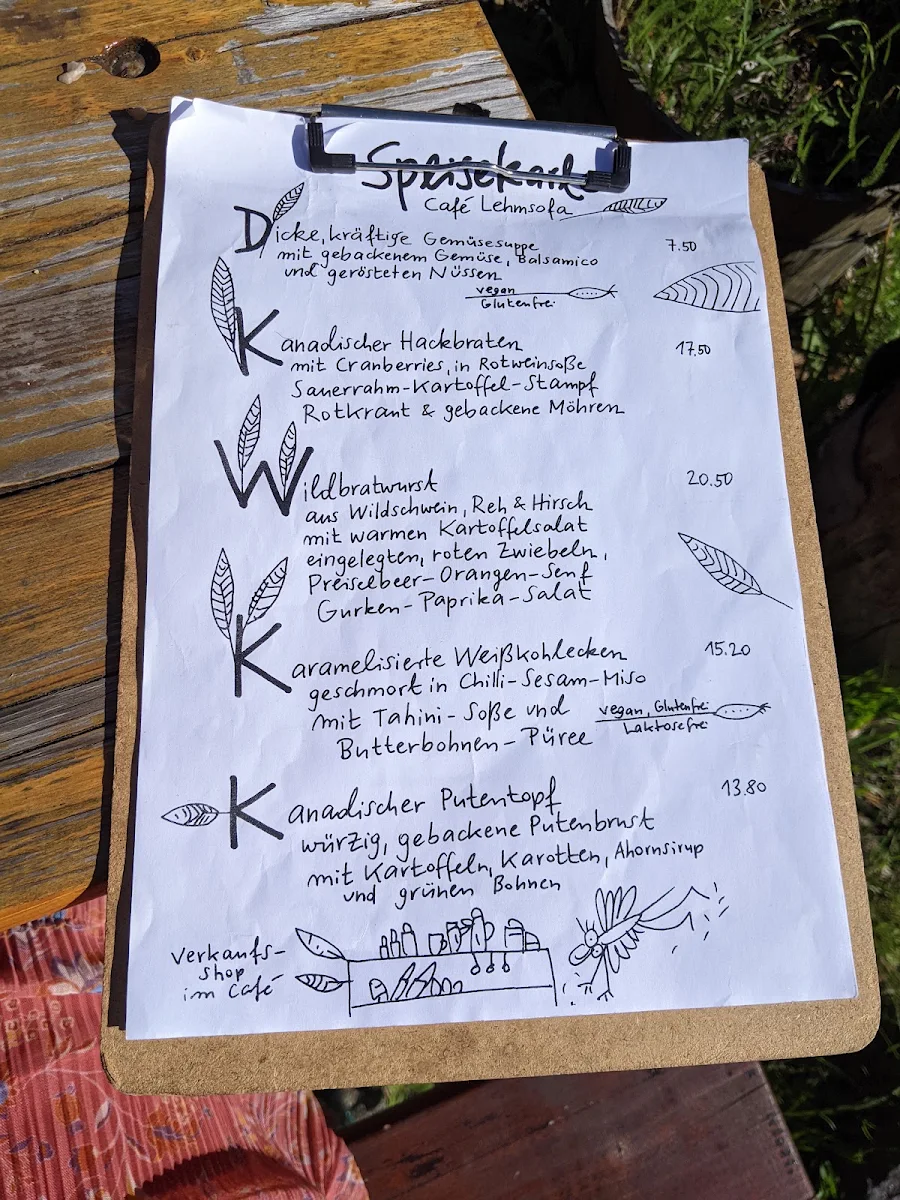 Speisekarte
Café Lehmsofa
Dicke, kräftige Gemüsesuppe 7.50
mit gebackenem Gemüse, Balsamico
und gerösteten Nüssen
vegan
Glutenfrei
Kanadischer Hackbraten 17.50
mit Cranberries, in Rotweinsoße
Sauerrahm-Kartoffel-Stampf
Rotkraut & gebackene Möhren
Wildbratwurst 20.50
aus Wildschwein, Reh & Hirsch
mit warmen Kartoffelsalat
eingelegten, roten Zwiebeln,
Preiselbeer-Orangen-Senf
Gurken-Paprika-Salat
Karamelisierte Weißkohlecken 15.20
geschmort in Chilli-Sesam-Miso
mit Tahini-Soße und
Butterbohnen-Püree
vegan, Glutenfrei
Laktosefrei
Kanadischer Putentopf 13.80
würzig, gebackene Putenbrust
mit Kartoffeln, Karotten, Ahornsirup
und grünen Bohnen
Verkaufs-
shop
im Café